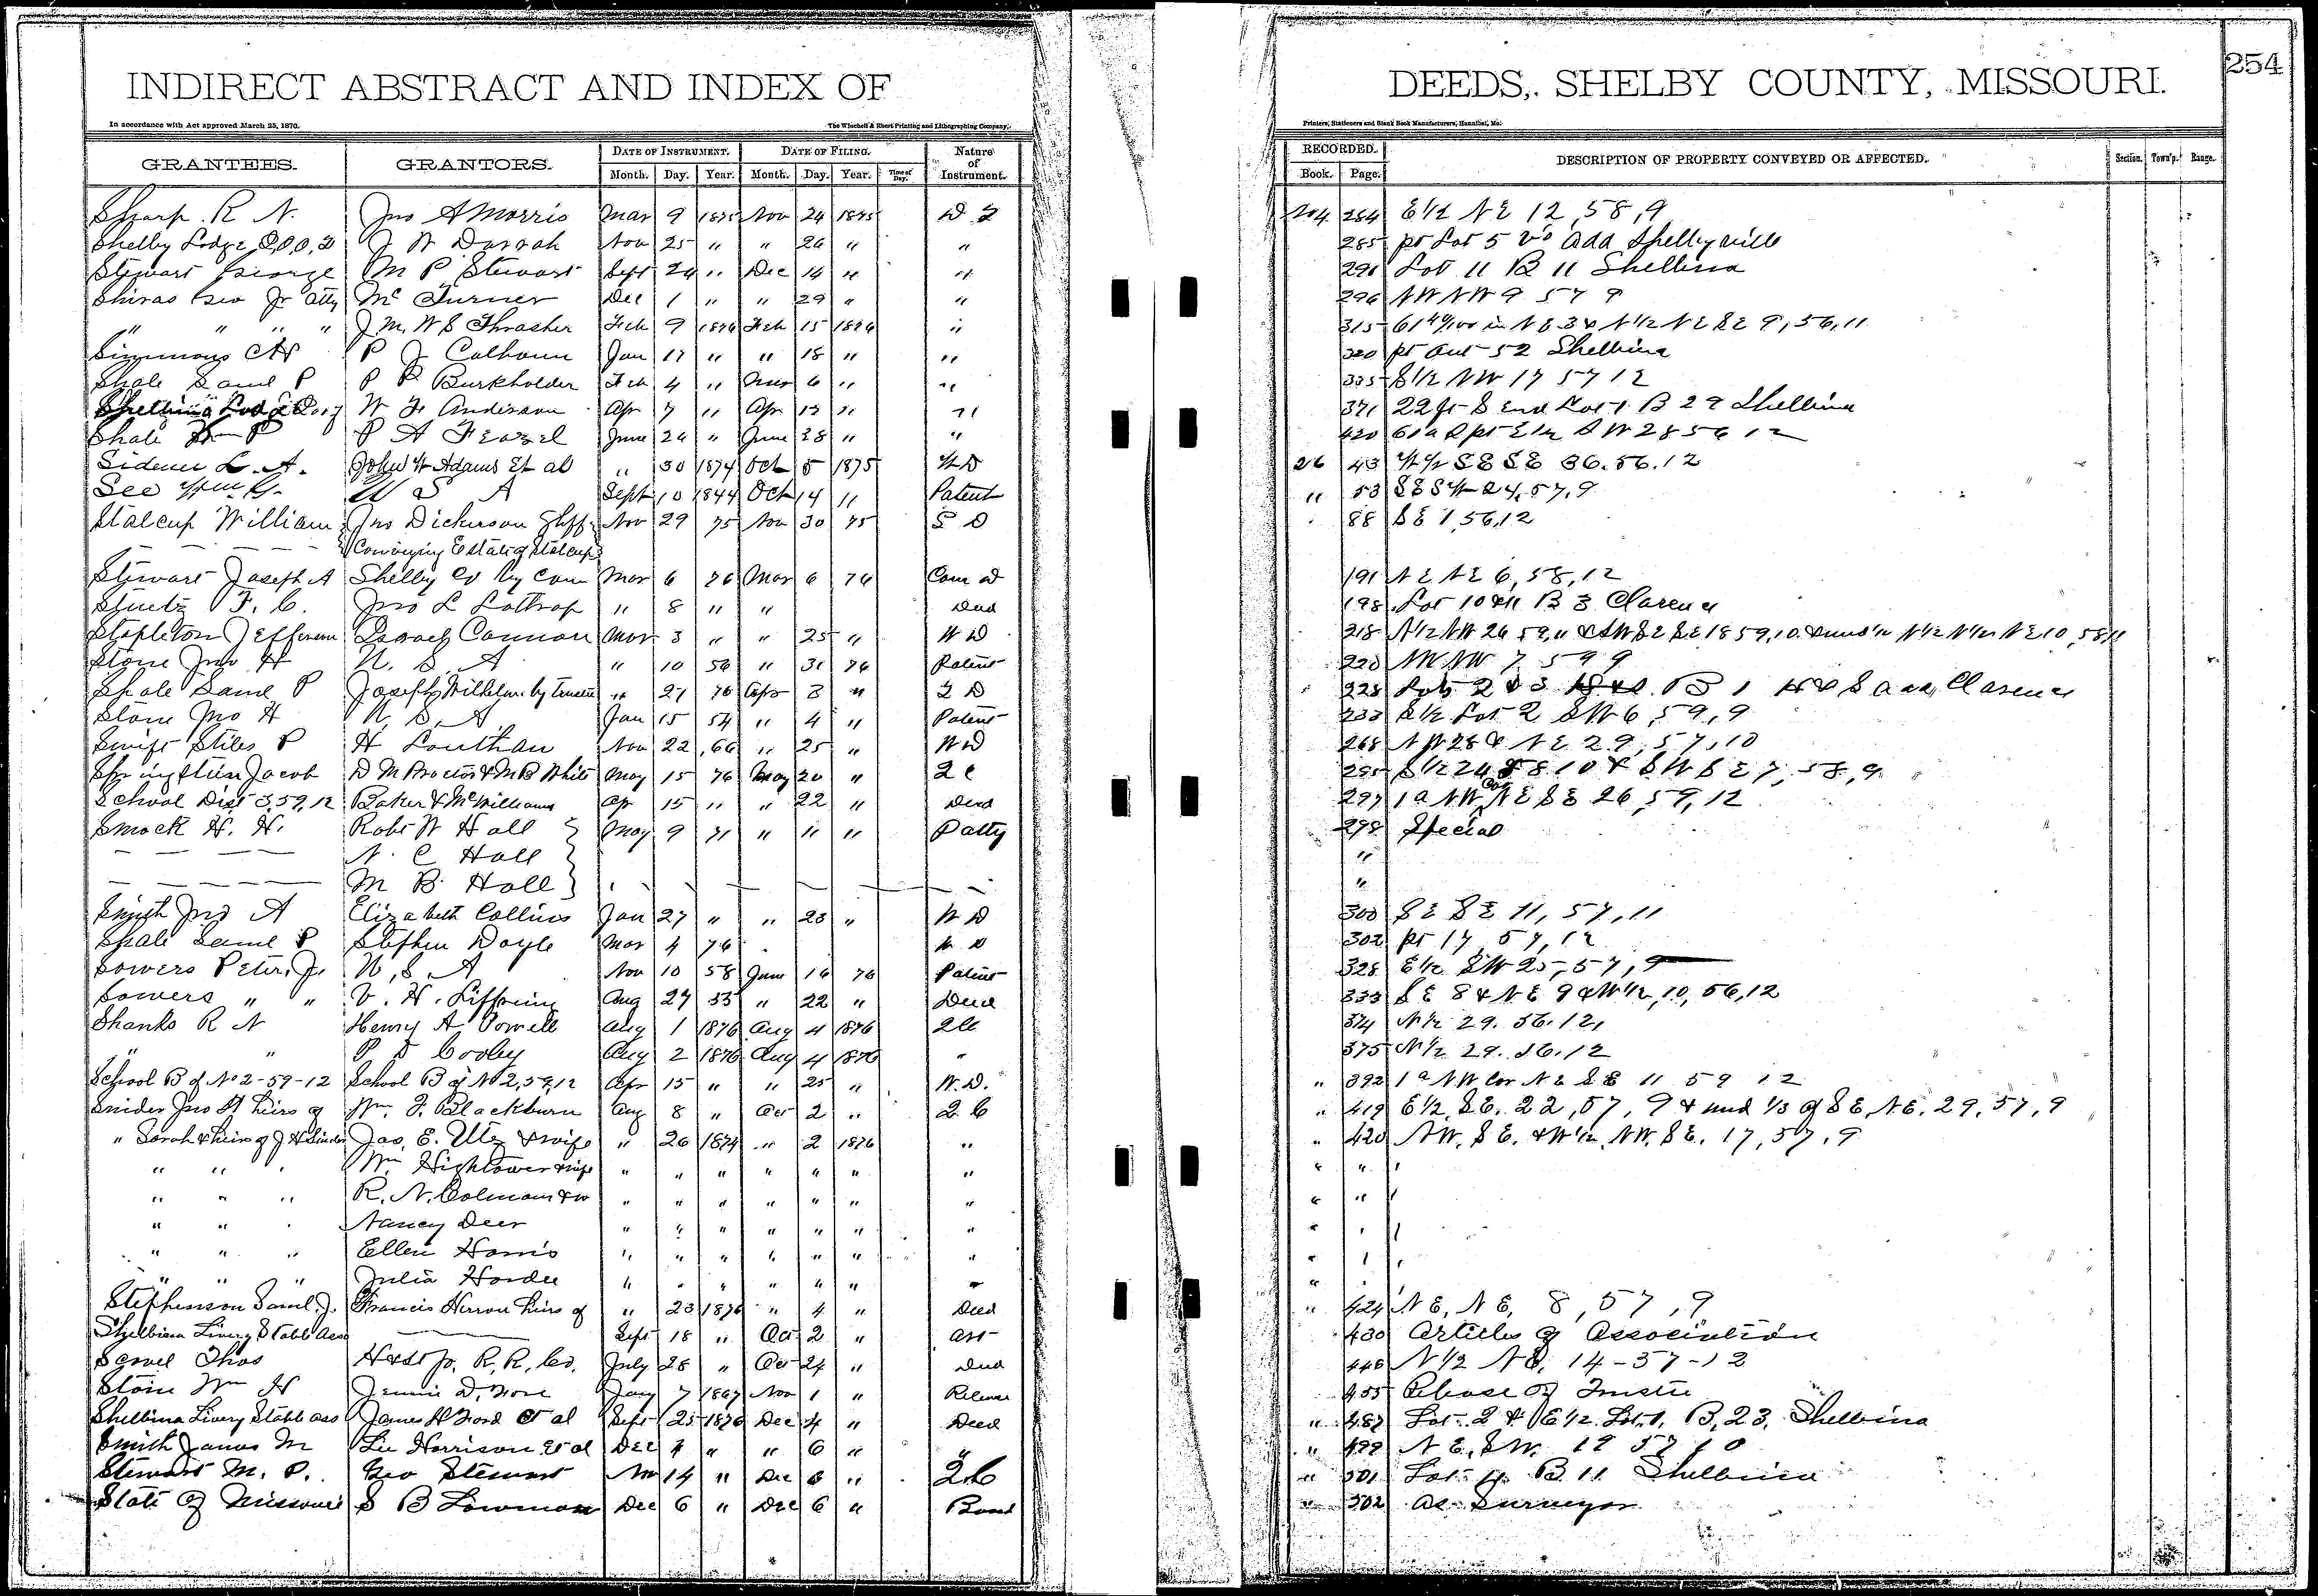 INDIRECT ABSTRACT AND INDEX OF DEEDS, SHELBY COUNTY, MISSOURI. 254
In accordance with Act approved March 25, 1870. The Winchell & Ebert Printing and Lithographing Company, Printers, Stationers and Blank Book Manufacturers, Hannibal, Mo.
GRANTEES. GRANTORS. DATE OF INSTRUMENT. DATE OF FILING. Nature of Instrument. RECORDED. DESCRIPTION OF PROPERTY CONVEYED OR AFFECTED. Section. Town'p. Range.
Month. Day. Year. Month. Day. Year. Time of Day. Book. Page.
Sharp R N. Jno A Morris Mar 9 1875 Nov 24 1875 284 E1/2 NE 12, 58, 9
Shelby Lodge J W Darrah Nov 25 " " 26 " " 285 pt Lot 5 add Shelbyville
Stewart George M P Stewart Sept 24 " Dec 14 " " Lot 11 B 11 Shelbina
Shiras Geo Jr atty Mc Turner Dec 1 " " 29 " " 296 NW NW 9 57 9
" " " " J M, W S Thrasher Feb 9 1876 Feb 15 1876 " 315 NE 3 & N1/2 NE SE 9, 56, 11
Simmons P J Calhoun Jan 17 " " 18 " " 320 pt out 52 Shelbina
Shale Saml P P P Burkholder Feb 4 " Mar 6 " " 335 S1/2 NW 17 57 12
Shelbina Lodge W F Anderson Apr 7 " Apr 17 " " 371 22 ft S end Lot 1 B 29 Shelbina
Shale P P A Feazel June 24 " June 28 " " 420 61a S pt E1/2 SW 28 56 12
Sidener L. A. John W Adams Et al " 30 1874 Oct 5 1875 W D 26 43 W1/2 SE SE 36. 56. 12
See Wm G. U S A Sept 10 1844 Oct 14 " Patent " 53 SE SW 24, 57, 9
Stalcup William Jno Dickerson Shff Nov 29 75 Nov 30 75 S D 88 SE 1, 56, 12
Conveying Estate of Stalcup
Stewart Joseph A Shelby Co by Com Mar 6 76 Mar 6 76 Com D 191 NE NE 6, 58, 12
Stuetz F. C. Jno L Lathrop " 8 " " Deed 198 Lot 10 & 11 B 3 Clarence
Stapleton Jefferson Israel Cannon Mar 3 " " 25 " W D 218 N1/2 NW 26 59, 11 & SW SE SE 18 59, 10 & und 1/2 N1/2 N1/2 NE 10, 58, 11
Stone Jno H U. S. A " 10 56 " 31 76 Patent 220 NW NW 7 59 9
Shale Saml P Joseph Wilhelm by trustee " 27 76 Apr 3 " T D 228 Lots 2 & 3 B 1 H & S add, Clarence
Stone Jno H U. S. A Jan 15 54 " 4 " Patent 233 S1/2 Lot 2 SW 6, 59, 9
Swift Stiles P H Louthan Nov 22, 66 " 25 " W D 268 NW 28 & NE 29, 57, 10
Springstun Jacob D M Proctor & M B White May 15 76 May 20 " 2 C 295 S1/2 24 & 8 10 & SW SE 7, 58, 9
School Dist 3, 59, 12 Baker & McWilliams Ap 15 " " 22 " Deed 297 1a NW Cor NE SE 26, 59, 12
Smock H. H. Robt W Hall May 9 71 " 11 " P atty 298 Special
— — — — N. C Hall "
— — — — M B. Hall "
Smith Jno A Elizabeth Collins Jan 27 " " 23 " W D 300 SE SE 11, 57, 11
Shale Saml P Stephen Doyle Mar 4 76 W D 302 pt 17, 57, 12
Sowers Peter, Jr. U, S, A Nov 10 58 June 16 76 Patent 328 E1/2 SW 25, 57, 9
Sowers " " V. H. Liffring Aug 27 55 " 22 " Deed 333 SE 8 & NE 9 & W1/2, 10, 56, 12
Shanks R N Henry A Powell Aug 1 1876 Aug 4 1876 2 C 374 N1/2 29. 56. 12,
" " P D Cooley Aug 2 1876 Aug 4 1876 " 375 N1/2 29. 56. 12
School B of No 2-59-12 School B of No 2, 59, 12 Apr 15 " " 25 " W. D. " 392 1a NW Cor NE SE 11 59 12
Snider Jno H heirs of Wm. F. Blackburn Aug 8 " Oct 2 " 2. C " 419 E1/2, SE. 22, 57, 9 & und 1/3 of SE, NE. 29, 57, 9
" Sarah & heirs of J H Snider Jas. E. Utz & wife " 26 1874 " 2 1876 " " 420 NW, SE. & W1/2, NW. SE. 17, 57, 9
" " " Wm Hightower & wife " " " " " " " " "
" " " R. N. Colman & w " " " " " " " " "
" " " Nancy Deer " " " " " " " " "
" " " Ellen Harris " " " " " " " " "
" " " Julia Hardee " " " " " " " "
Stephenson Saml. J. Francis Herron heirs of " 23 1876 " 4 " Deed " 424 NE, NE, 8, 57, 9
Shelbina Livery Stable Asso Sept 18 " Oct 2 " 430 Articles of Association
Thos H & St Jo, R, R, Co. July 28 " Oct 24 " Deed 446 N1/2 NE, 14-57-12
Stone Wm H Jennie D, Jany 7 1867 Nov 1 " Release 455 Release of
Shelbina Livery Stable Ass James H Ford et al Sept 25 1876 Dec 4 " Deed " 487 Lot 2 & E1/2 Lot 1, B, 23, Shelbina
Smith James M Harrison et al Dec 4 " " 6 " " " 499 NE, SW. 19 57 10
Stewart M. P. Geo Stewart Nov 14 " Dec 6 " 2. C " 501 Lot 11 B 11 Shelbina
State of Missouri S B Lowman Dec 6 " Dec 6 " Bond " 502 as Surveyor